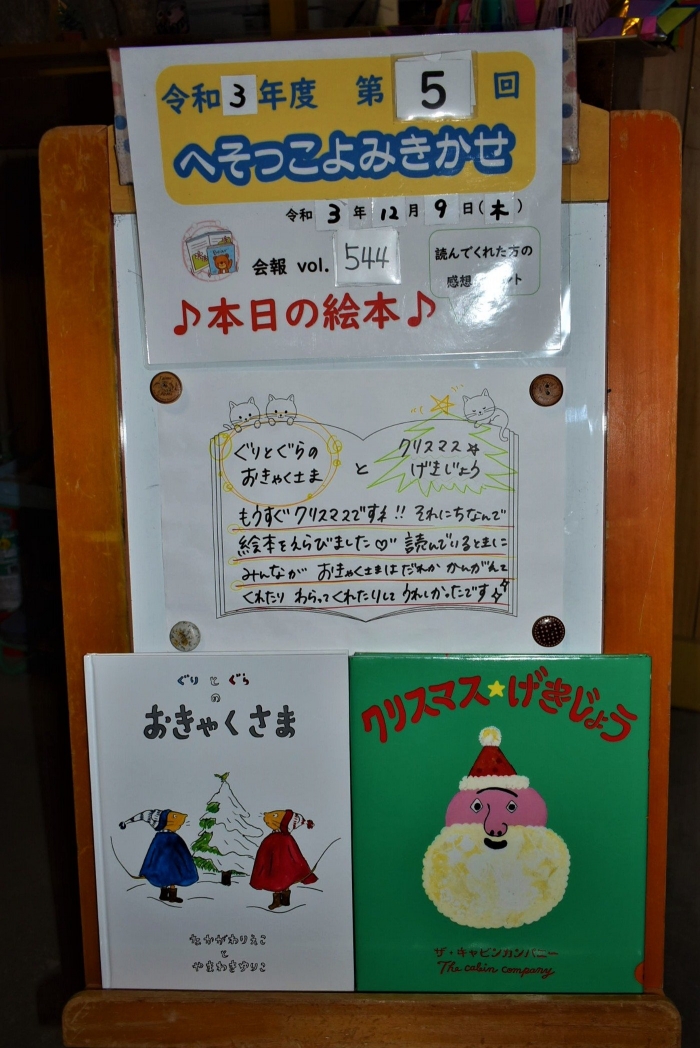 令和3年度 第5回
へそっこよみきかせ
令和3年12月9日(木)
会報 vol.544
読んでくれた方の
感想 ント
♪本日の絵本♪
ぐりとぐらの
おきゃくさま
と
クリスマス☆
げきじょう
もうすぐクリスマスですネ!! それにちなんで
絵本をえらびました♡ 読んでいるときに
みんなが おきゃくさまは だれか かんがえて
くれたり わらってくれたりして うれしかったです
ぐりとぐら
の
おきゃくさま
なかがわりえこ
と
やまわきゆりこ
クリスマス★げきじょう
ザ・キャビンカンパニー
The cabin company